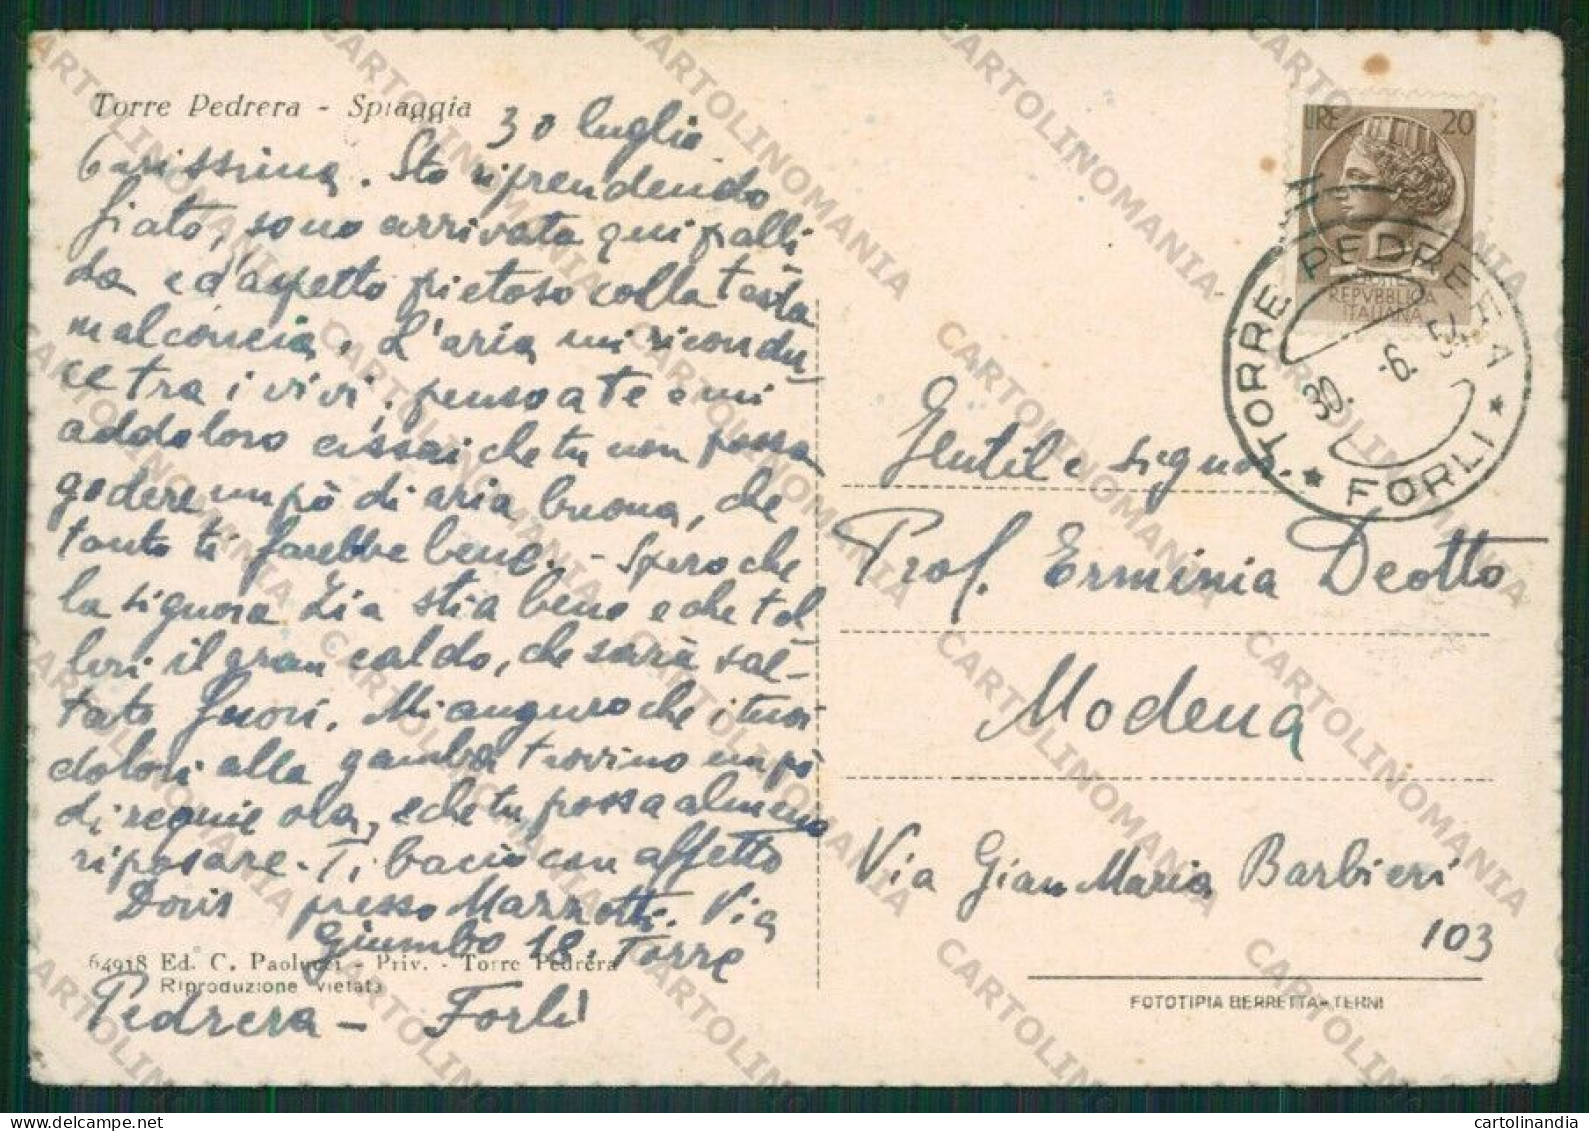 Torre Pedrera - Spiaggia
30 luglio
Carissima. Sto riprendendo
fiato, sono arrivata qui palli
da e d'aspetto pietoso colla testa
malconcia. L'aria mi ricondu
ce tra i vivi, penso a te e mi
addoloro assai che tu non possa
godere un pò di aria buona, che
tanto ti farebbe bene. - Spero che
la signora Zia stia bene e che tol-
leri il gran caldo, che sarà sal-
tato fuori. Mi auguro che i tuoi
dolori alla gamba trovino un pò
di requie ora, e che tu possa almeno
riposare. Ti bacio con affetto
Doris presso Mazzotti. Via
Giumbo 18. Torre
Pedrera - Forlì
64918 Ed. C. Paolucci - Priv. - Torre Pedrera
Riproduzione vietata
LIRE 20
POSTE
REPVBBLICA
ITALIANA
TORRE PEDRERA
30. 6. 54
* FORLI *
Gentile signor.
Prof. Erminia Deotto
Modena
Via Gian Maria Barbieri
103
FOTOTIPIA BERRETTA - TERNI
CARTOLINOMANIA
cartolinandia